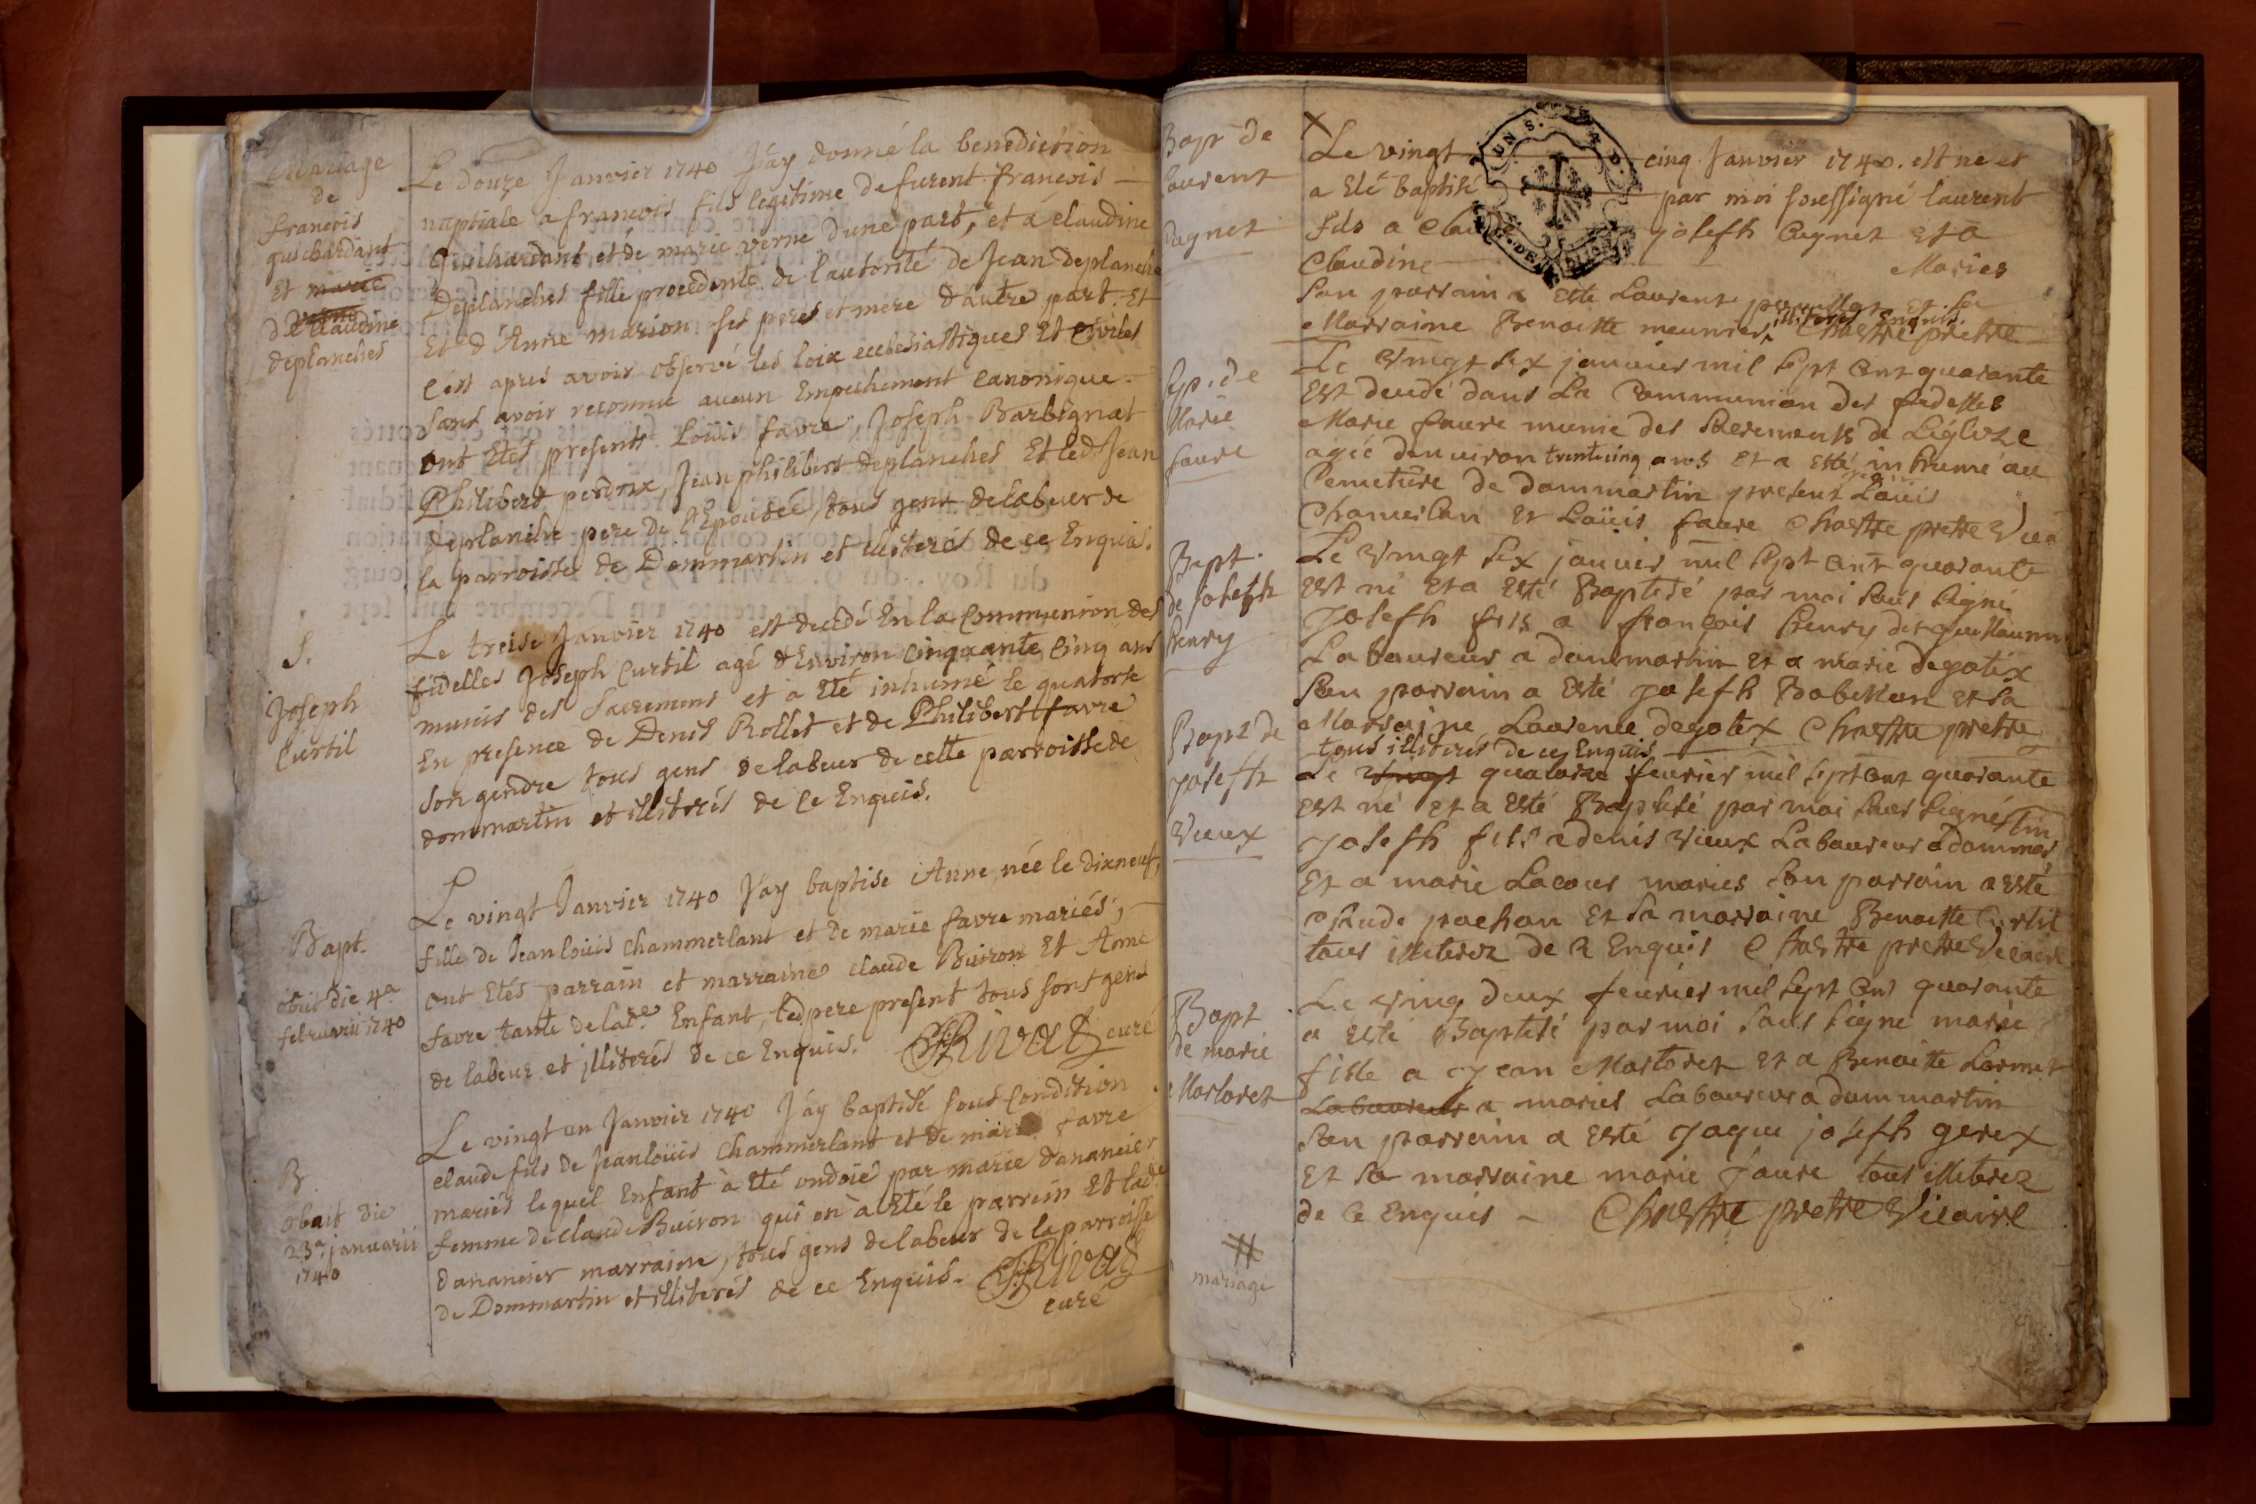 Mariage
de
francois
guichardant
Et marie
verne
d Et Claudine
deplanches
Le douze Janvier 1740 J'ay donné la benediction
nuptiale a francois fils legitime de furent francois
Guichardant et de marie verne d'une part, et a claudine
Deplanches fille procedente de l'autorité de Jean deplanche
Et d'Anne marion ses peres et mere d'autre part. Et
C'est apres avoir observé les loix ecclesiastiques Et Civiles
sans avoir reconnu aucun Empechement Canonique.
ont Etés presents Loüis favre, Joseph Barbignat
Philibert perdrix, Jean philibert deplanches Et led Jean
deplanche pere de l'Epousée, tous gens de labeur de
la parroisse de Dommartin et illiterés de ce Enquis.
S.
Joseph
Curtil
Le treise Janvier 1740 est decedé En la Communion des
fidelles Joseph Curtil agé d'Environ Cinquante Cinq ans
munis des Sacremens et a Eté inhumé le quatorse
En presence de Denis Rollet et de Philibert favre
Son gendre tous gens de labeur de cette parroisse de
dommartin et illiterés de Ce Enquis.
Bapt.
obiit die 4a
februarii 1740
Le vingt Janvier 1740 J'ay baptise Anne née le dixneuf,
fille de Jean loüis Chammerlant et de marie favre mariés,
ont Etés parrain et marraine claude Buiron Et Anne
favre tante de lad.e Enfant, led pere present tous sont gens
de labeur et illiterés de ce Enquis. Rivat curé
B
obiit die
23a januarii
1740
Le vingt un Janvier 1740 J'ay baptisé sous Condition
claude fils de Jean loüis Chammerlant et de marie favre
mariés lequel Enfant à Eté ondoié par marie danancier
femme de claude Buiron qui en à Eté le parrein Et lade
danancier marraine, tous gens de labeur de la parroisse
de Dommartin et illiterés de ce Enquis. Rivat
curé
Bapt de
Laurent
Cagnet
Le vingt cinq Janvier 1740. est ne et
a Eté baptisé par moi soussigné laurent
fils a Claude joseph Cagnet et a
Claudine Maries
Son parrain a Esté Laurent et sa
Marraine Benoitte meunier illiterés enquis Chastre pretre
Sep. de
Marie
faure
Le Vingt six januier mil sept cent quarante
Est decedé dans La Communion des fidelles
Marie faure munie des sacrements de L'eglize
agéé d'enuiron trentecinq ans et a esté inhumé au
Cemetiere de dommartin present Loüis
Chamerlan et Loüis faure Chastre pretre Vic
Bapt.
de Joseph
henry
Le Vingt six januier mil sept cent quarante
est né et a esté Baptisé par moi sous signé
Joseph fils a françois henry dit guillaumi
Laboureur a dommartin et a marie degatix
son parrain a esté joseph Babillon et sa
Marraine Laurence degatix Chastre pretre
tous illiterés de ce Enquis
Bapt de
joseph
Vieux
Le vingt quatorze feurier mil sept cent quarante
est né et a Esté Baptisé par moi sous signé
joseph fils a denis Vieux Laboureur a dommartin
Et a marie Lacour maries son parrain a esté
Claude pochon et sa marraine Benoitte Curtil
tous illiterez de ce Enquis Chastre pretre Vicaire
Bapt
de marie
Marloret
Le Vingt deux feurier mil sept cent quarante
a esté Baptisé par moi sous signe marie
fille a jean Marloret et a Benoitte Lormet
Laboureur a maries Laboureur a dommartin
son parrain a esté jaque joseph gerex
et sa marraine marie faure tous illiterez
de ce Enquis Chastre pretre Vicaire
#
mariage